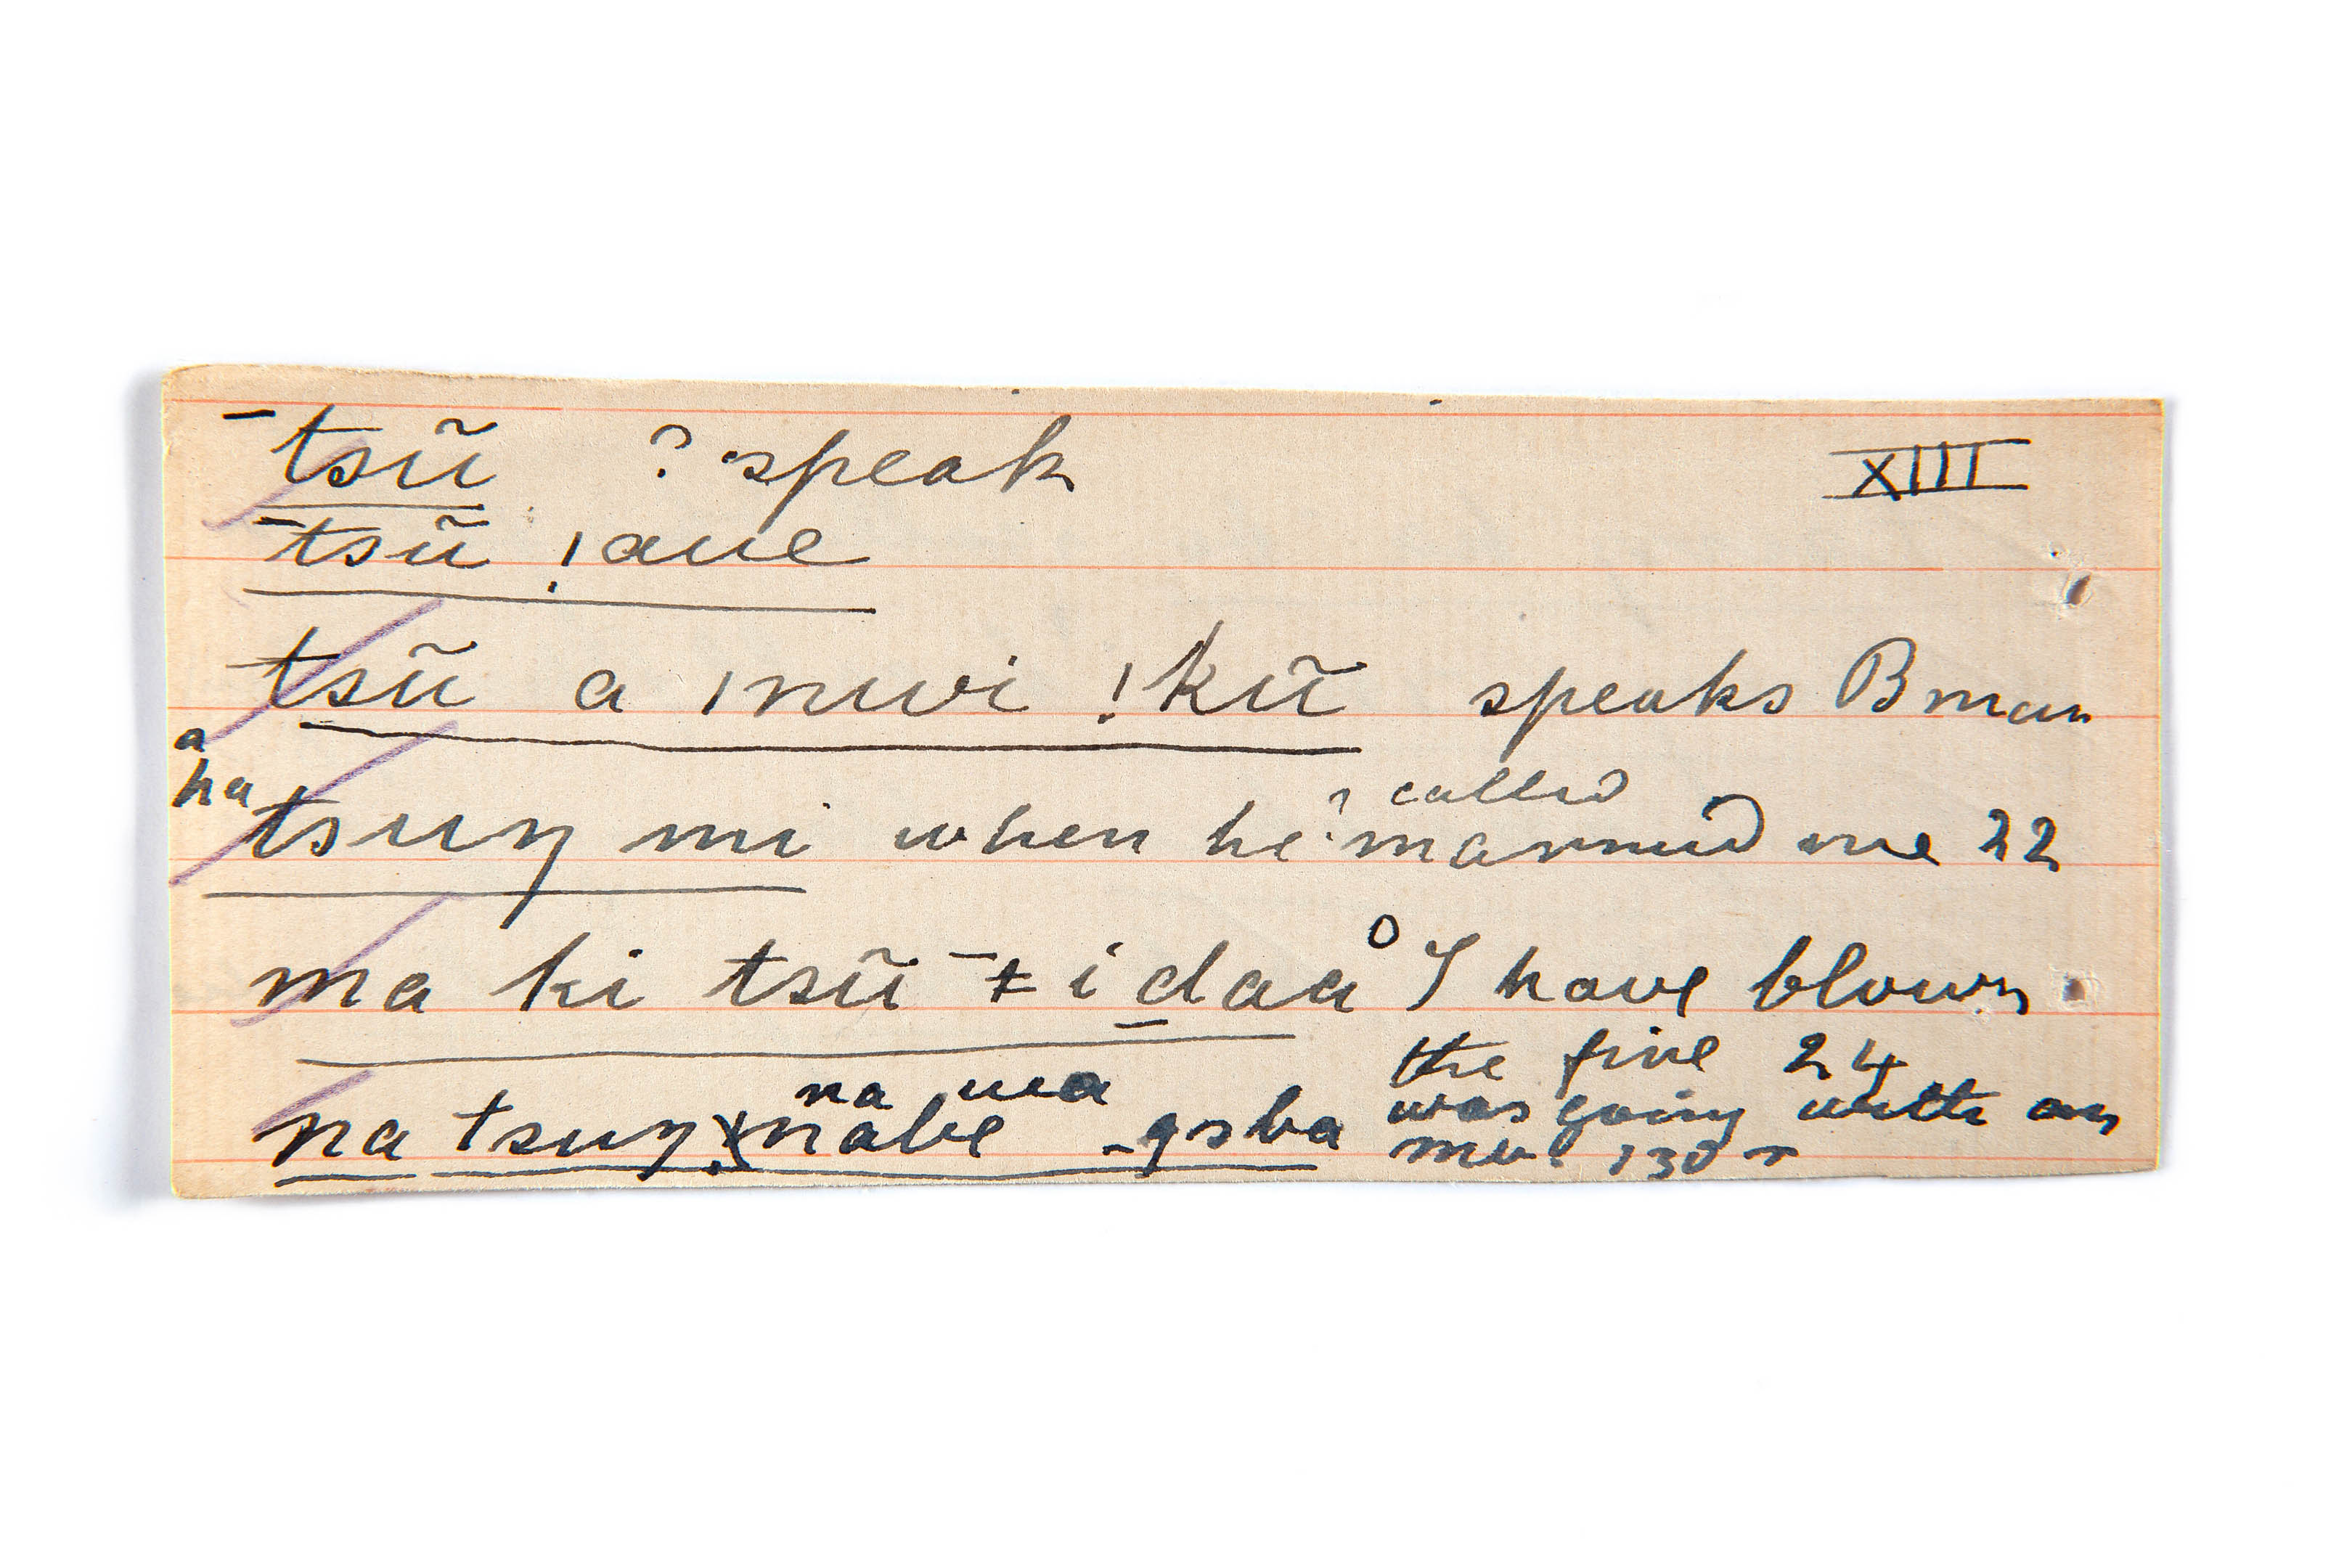 ¯tsũ ? speak XIII
¯tsũ ! aue
tsũ a ǀnwi !kũ speaks B man
a
ha tsuŋ mi when he ? called married me 22
ma ki tsũ ¯ǂ i daa I have blown
the fire 24
na tsuŋ nabe na ua _gsba was going with an
130